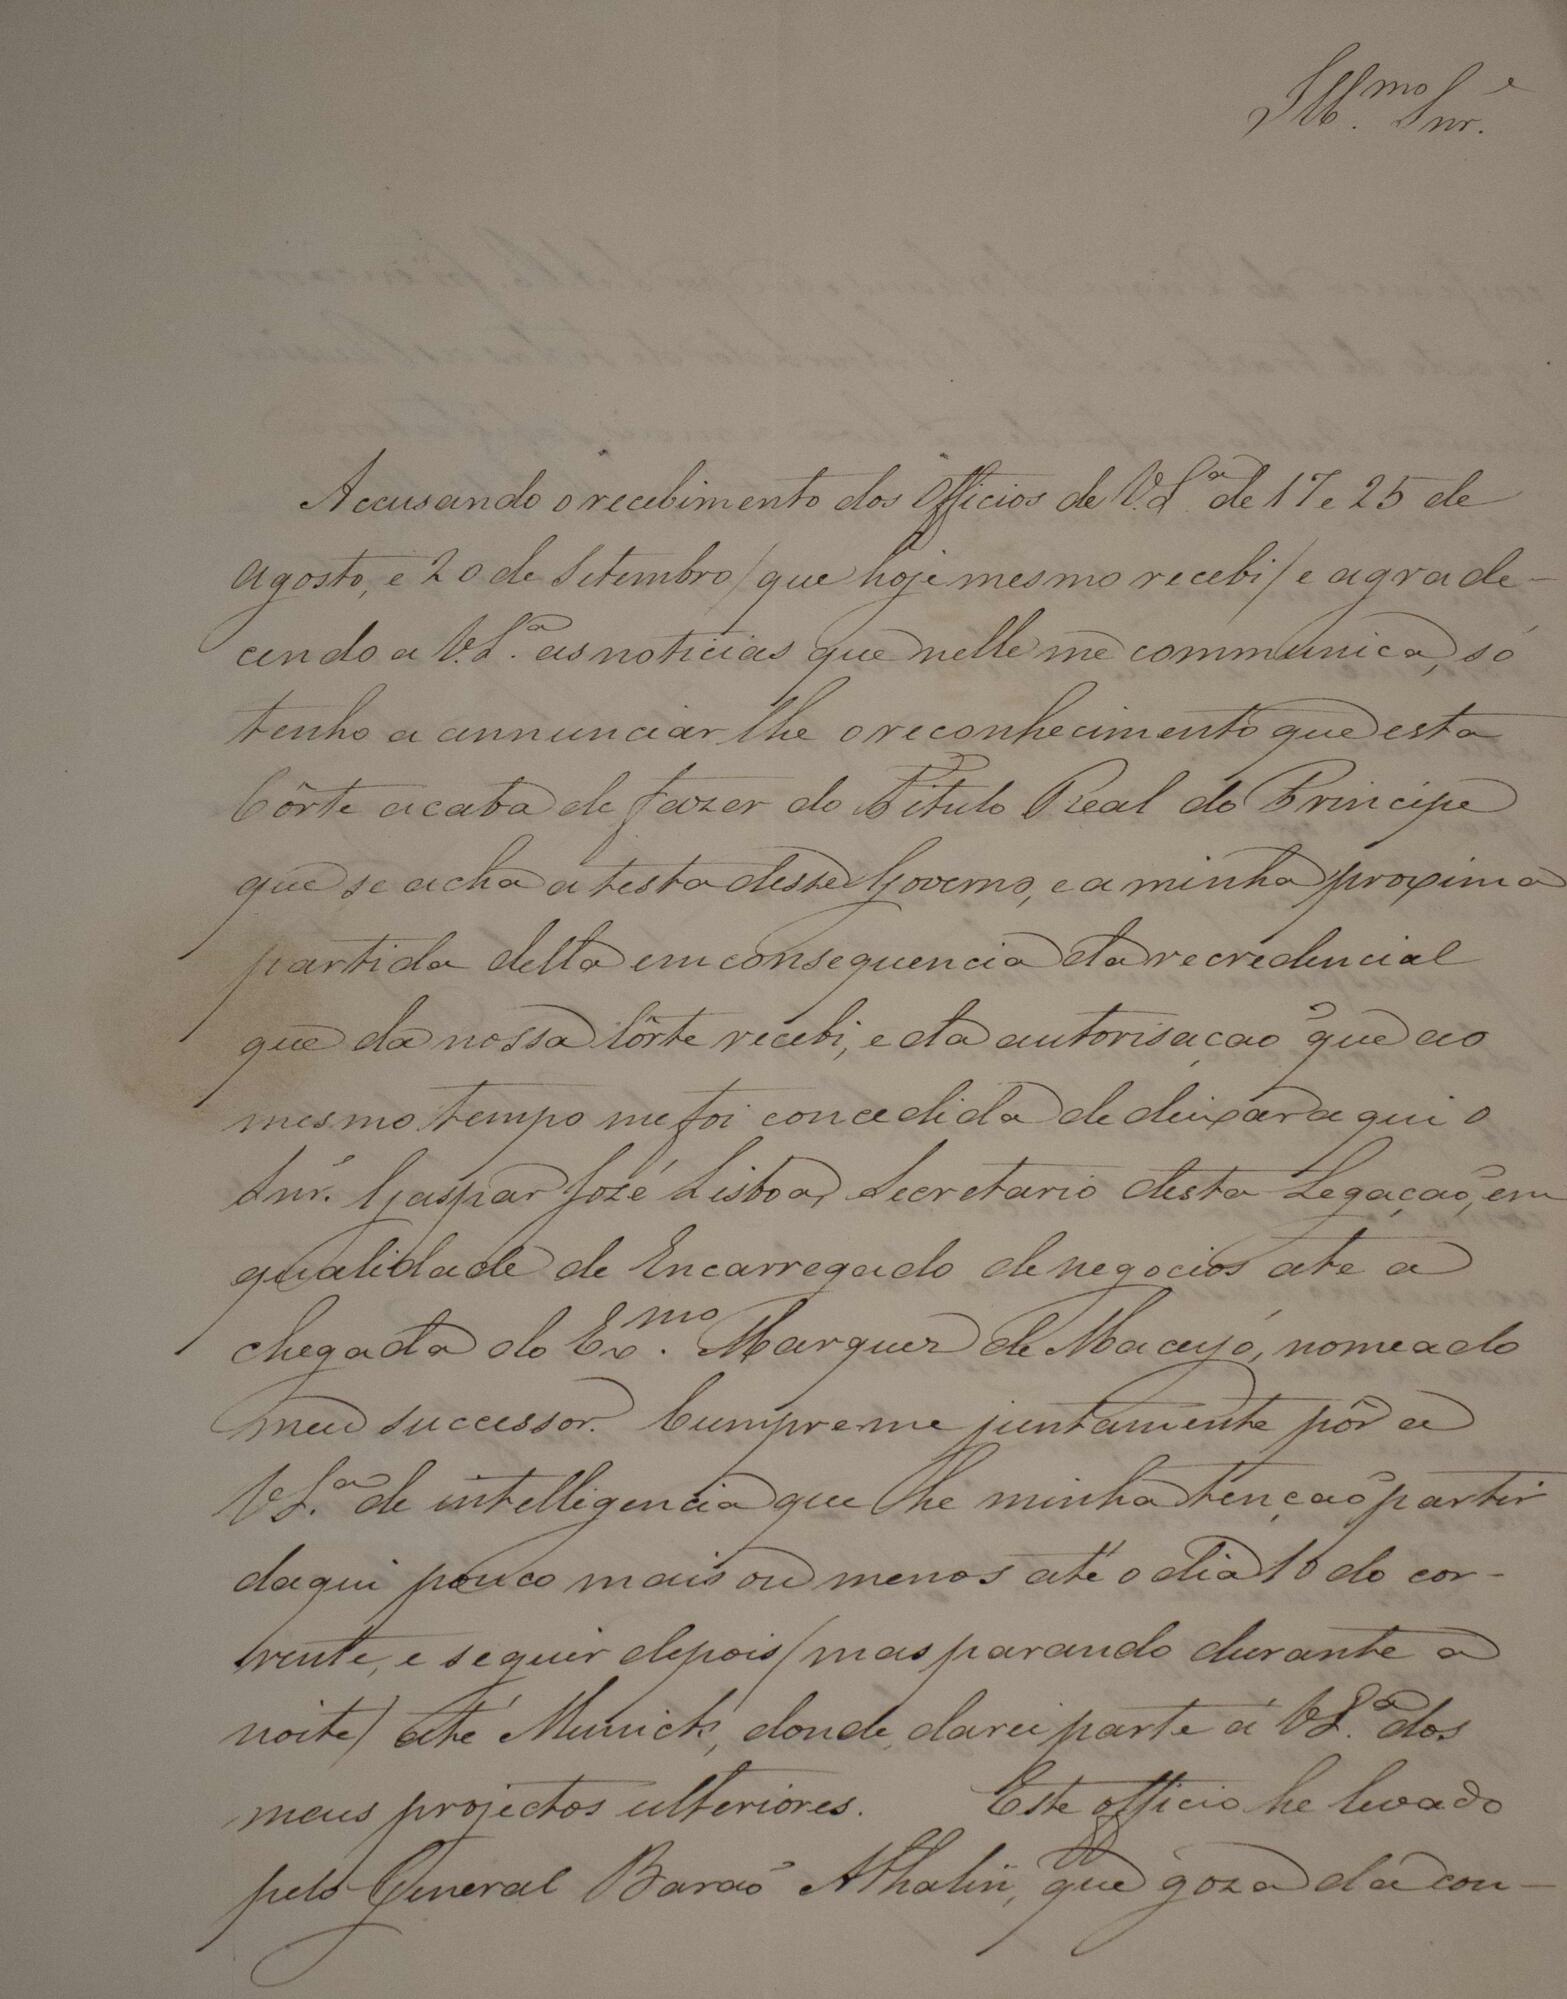 Ill.mo Snr.
Accusando o recebimento dos Officios de V.S.ª de 17 e 25 de
Agosto, e 20 de Setembro / que hoje mesmo recebi / e agrade-
cendo a V.S.ª as noticias que nelle me communica, só
tenho a annunciar lhe o reconhecimento que esta
Côrte acaba de fazer do Titulo Real do Principe
que se acha a testa deste Governo, e a minha proxima
partida della em consequencia da recredencial
que da nossa Côrte recebi, e da autorisação que ao
mesmo tempo me foi concedida de deixar aqui o
Snr. Gaspar José Lisboa, Secretario desta Legação, em
qualidade de Encarregado de negocios até a
chegada do Ex.mo Marquez de Maceyó, nomeado
meu successor. Cumpre me juntamente pôr a
V.S.ª de intelligencia que he minha tenção partir
daqui pouco mais ou menos até o dia 10 do cor-
rente, e seguir depois / mas parando durante a
noite) até Munick, donde darei parte á V.S.ª dos
meus projectos ulteriores. Este officio he levado
pelo General Barão Athalin, que goza da con-